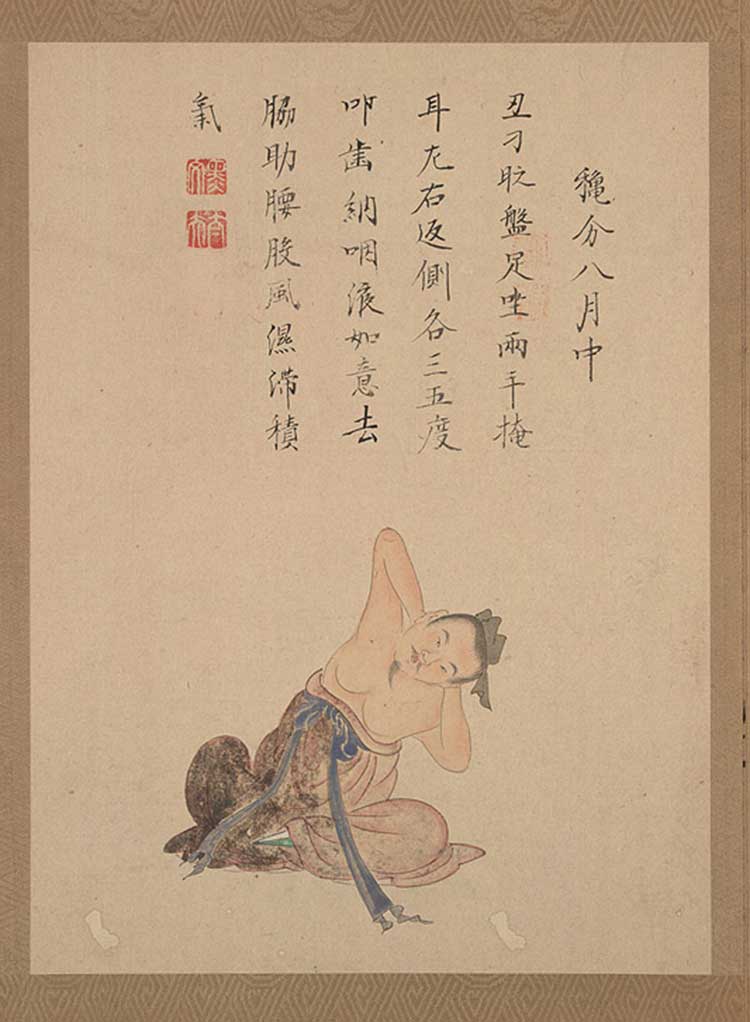 穐分八月中
丑刁盤足坐兩手掩
耳左右返側各三五度
叩歯納咽液如意去
脇助腰股風濕滞積
氣